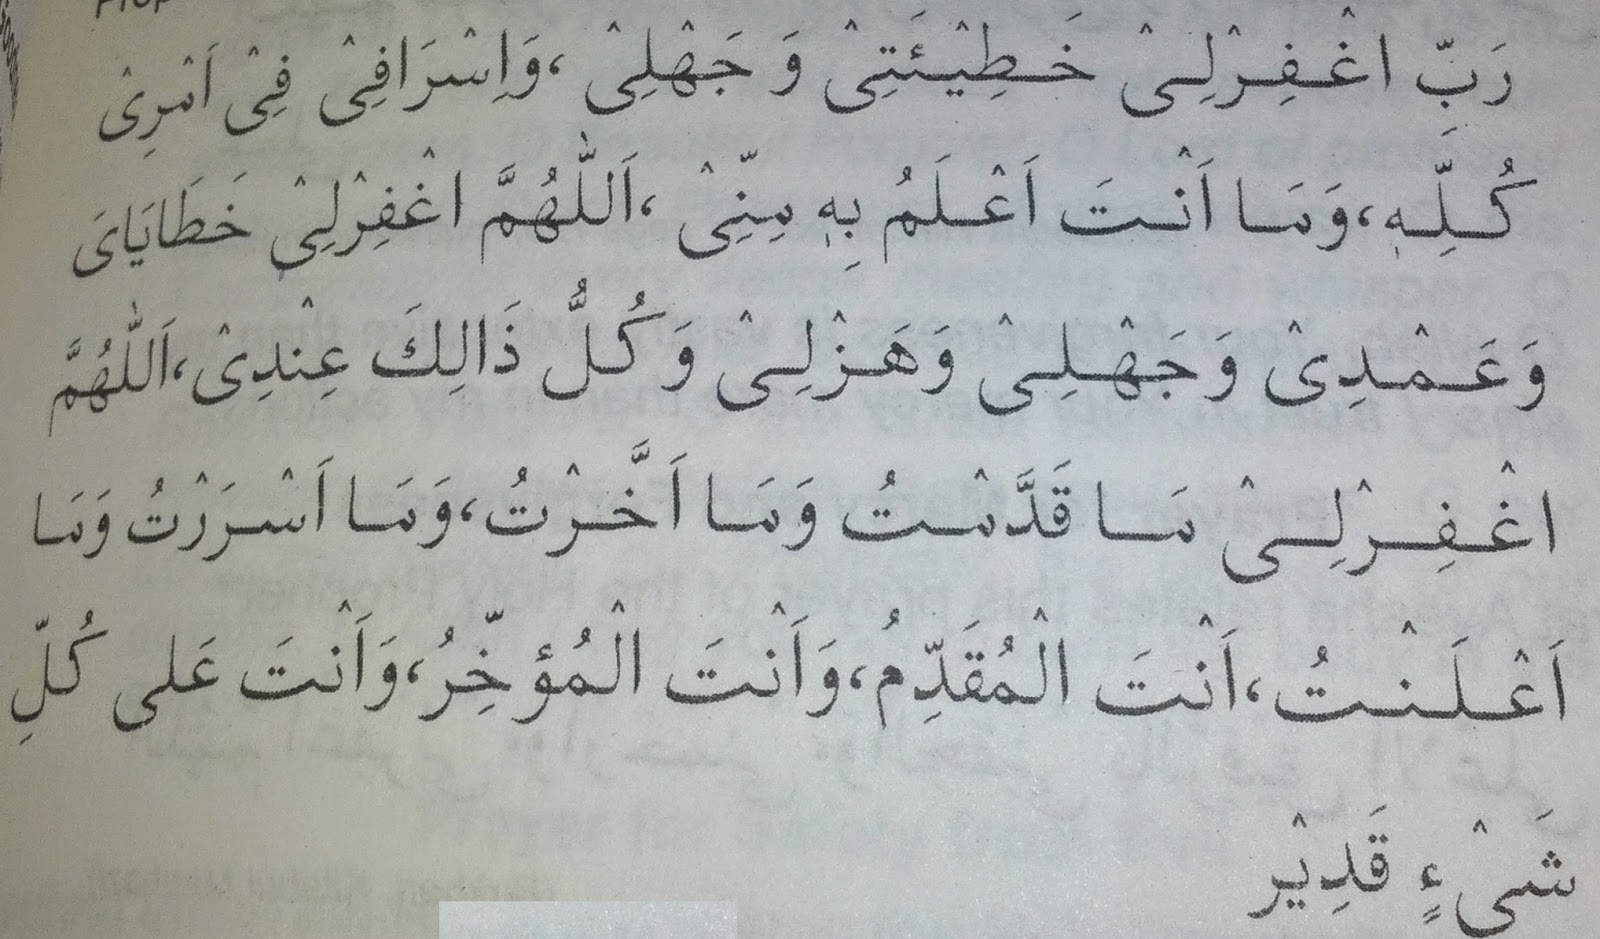 رَبِّ اغْفِرْلِىْ خَطِيْئَتِىْ وَ جَهْلِىْ ،وَاِسْرَافِىْ فِىْ اَمْرِىْ
كُلِّهٖ،وَمَا اَنْتَ اَعْلَمُ بِهٖ مِنِّىْ ،اَللّٰهُمَّ اغْفِرْلِىْ خَطَايَاىَ
وَعَمْدِىْ وَجَهْلِىْ وَهَزْلِىْ وَكُلُّ ذَالِكَ عِنْدِىْ،اَللّٰهُمَّ
اغْفِرْلِىْ مَا قَدَّمْتُ وَمَا اَخَّرْتُ،وَمَا اَسْرَرْتُ وَمَا
اَعْلَنْتُ،اَنْتَ الْمُقَدِّمُ،وَاَنْتَ الْمُؤَخِّرُ،وَاَنْتَ عَلى كُلِّ
شَىْءٍ قَدِيْر